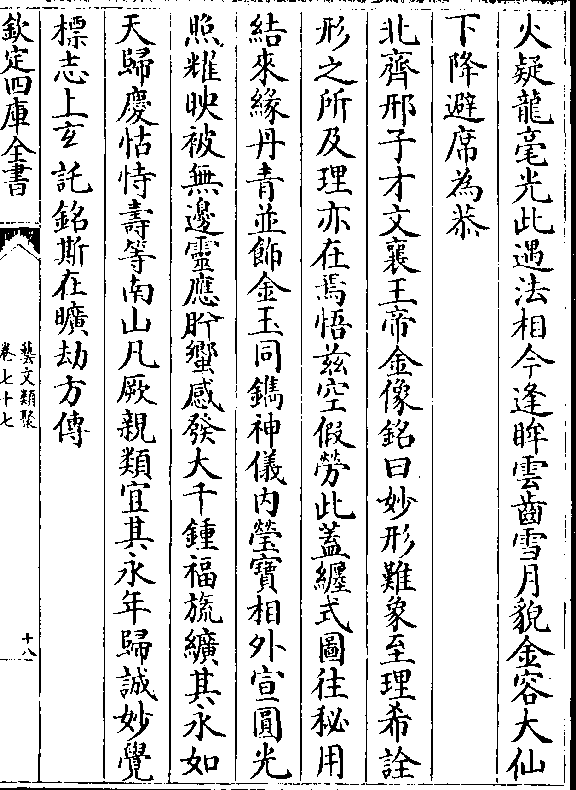 火疑龍毫光此遇法相今逢眸雲齒雪月貌金容大仙
下降避席為恭
北齊邢子才文襄王帝金像銘曰妙形難象至理希詮
形之所及理亦在焉悟兹空假勞此蓋纒式圖往秘用
結來緣丹青並飾金玉同鐫神儀内瑩寶相外宣圓光
照耀映被無邊靈應肸蠁感發大千鍾福旒纊其永如
天歸慶怙恃壽等南山凡厥親類宜其永年歸誠妙覺
標志上玄託銘斯在曠劫方傳
欽定四庫全書
藝文類聚
卷七十七
十八